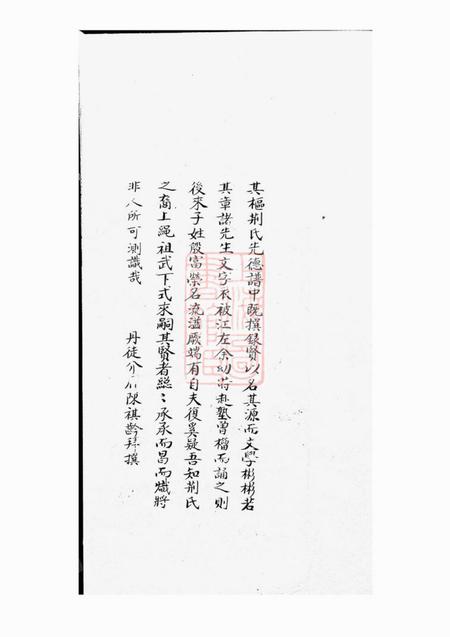 其樞荊氏先德譜中既撰錄賢以名其源而文學彬彬若
其章諸先生文字衣被江左余幼時赴塾曾橊而誦之則
後來子姓殷富榮名流溢厥端有自夫復奚疑吾知荊氏
之裔上繩祖武下式來嗣其賢者繼:承承而昌而熾將
非人所可測識哉
丹徒介石陳祺齡拜撰